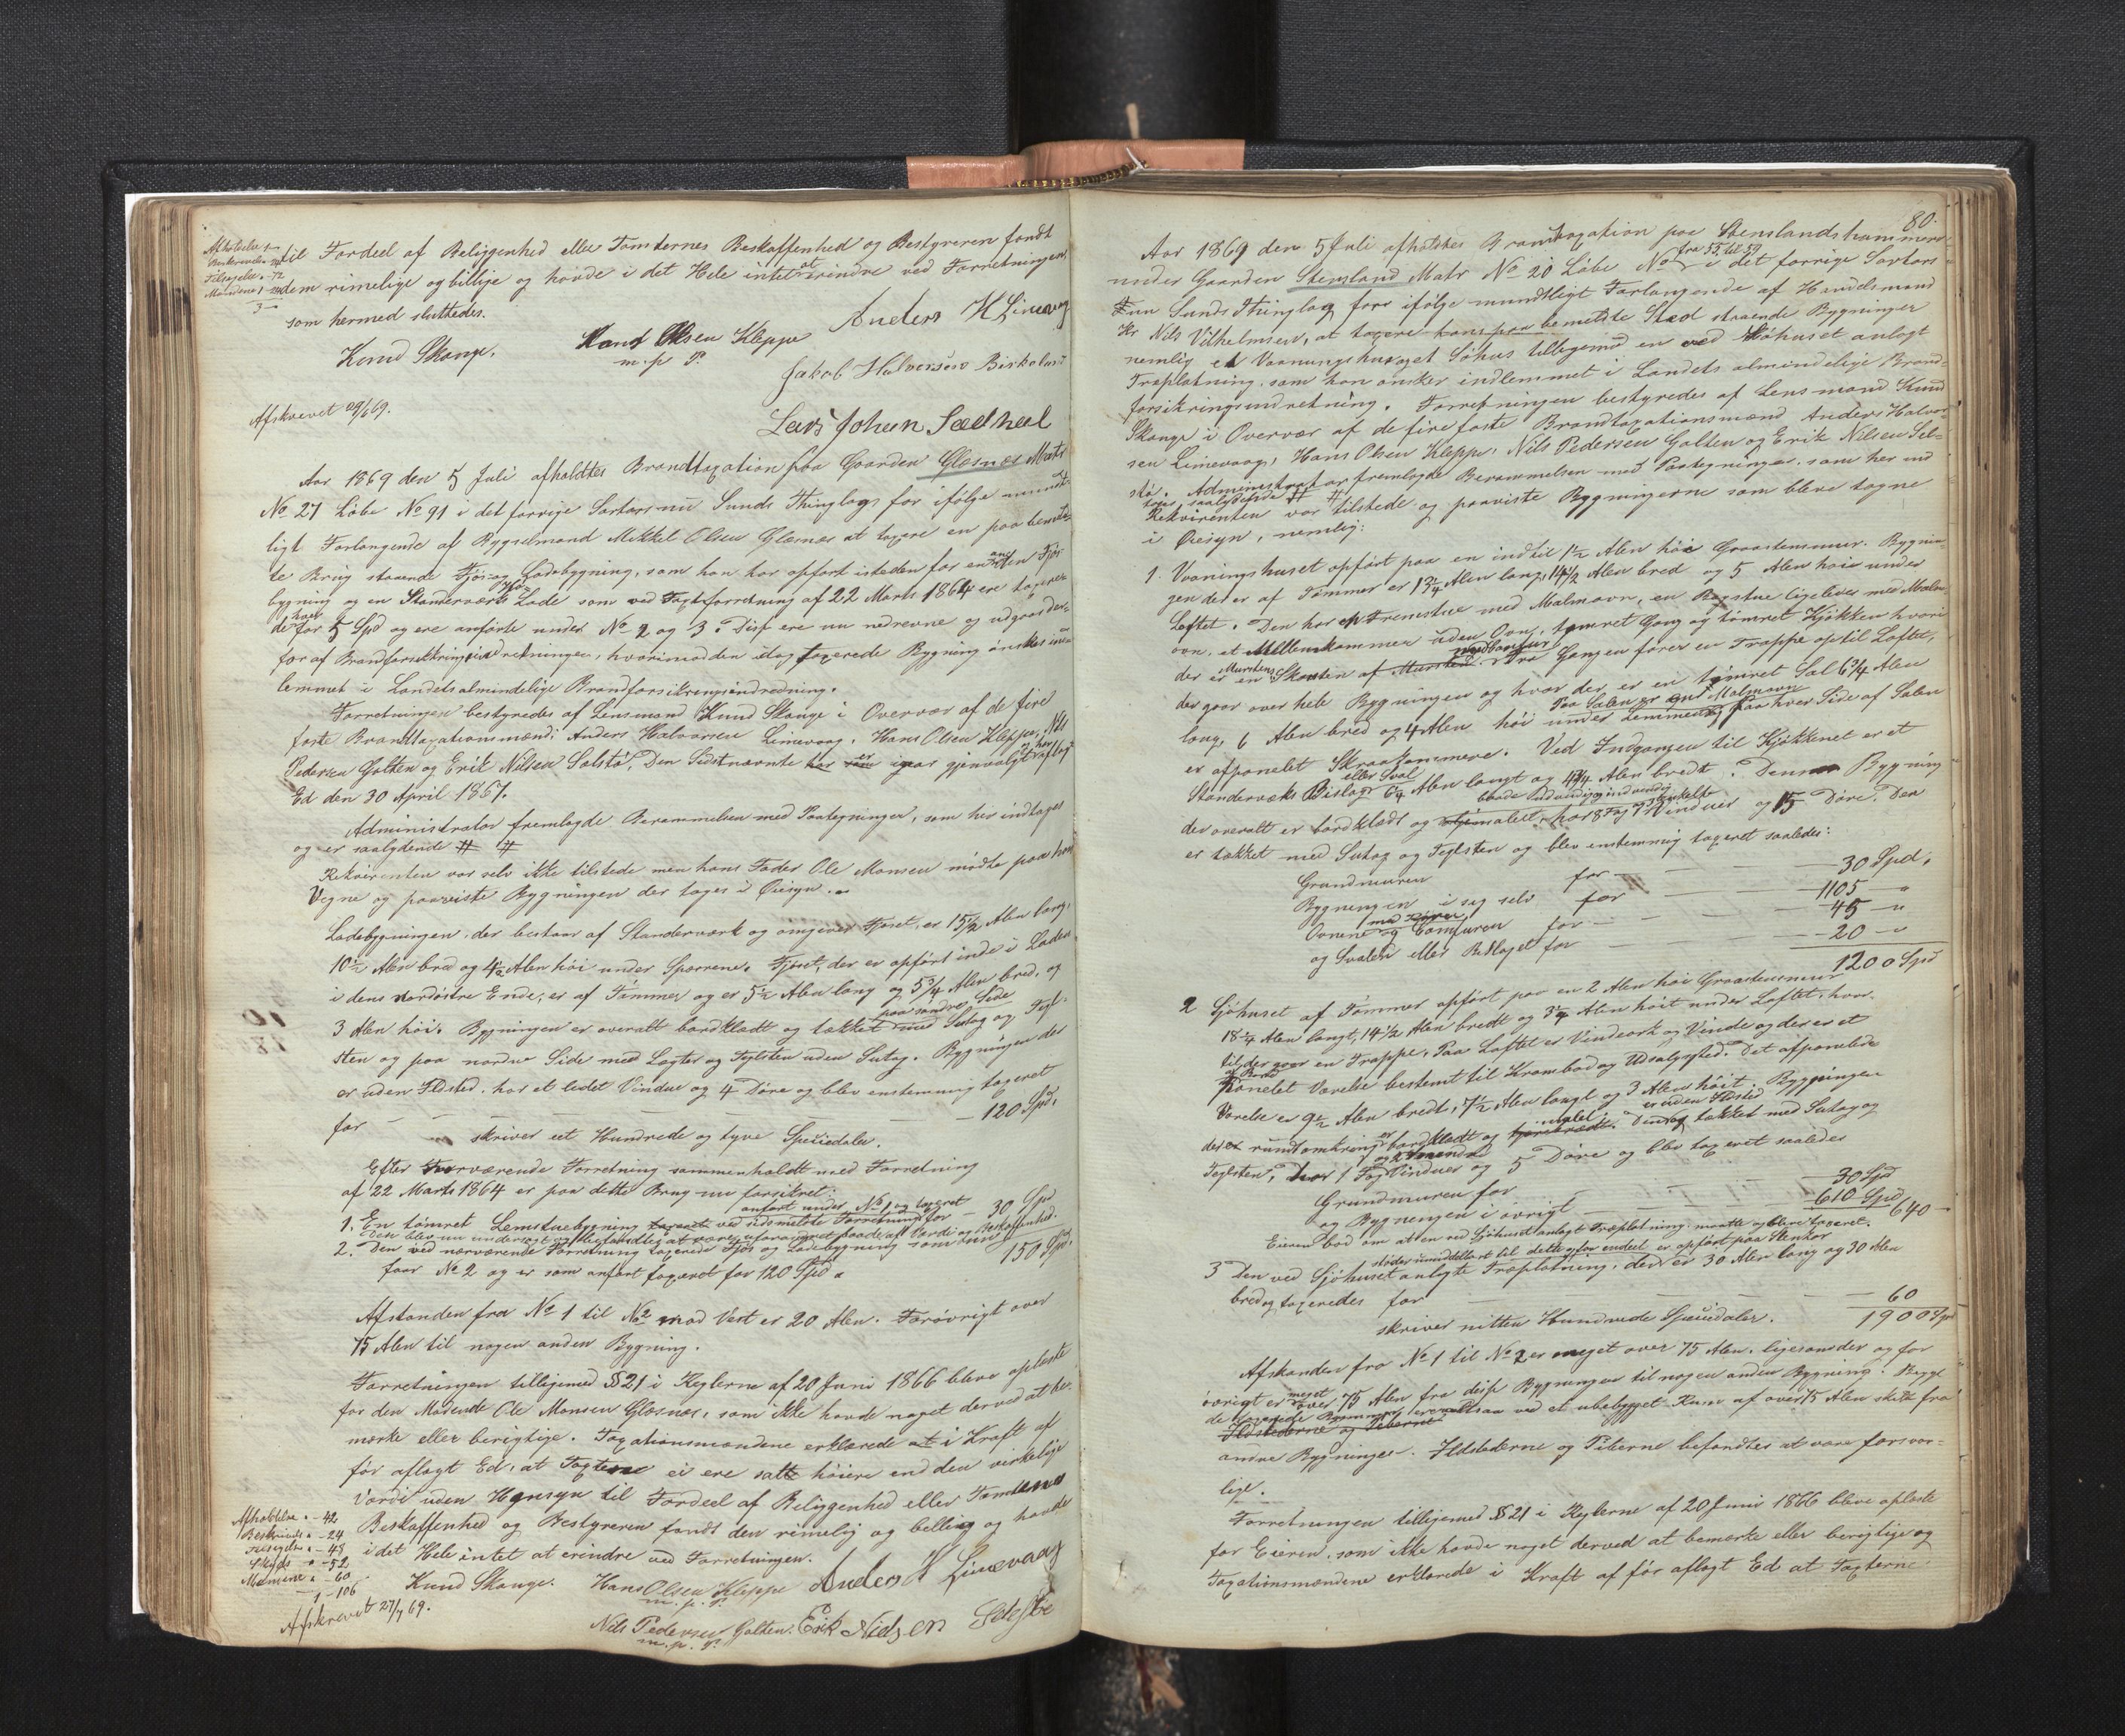 Afholdelse 1 –
Beskrivelse – 24
Tilsigelse – 72
Mændene 1 – 24
3 –
til Fordeel af Beliggenhed eller Tomternes Beskaffenhed og Bestyreren fandt
dem rimelige og billige og havde i det Hele intet at erindre ved Forretningen,
som hermed sluttedes.
Knud Skange. Hans Olsen Kleppe Anders H Limevaag
m. p. P. Jakob Halvorsen Birkeland
Afskrevet 29/6 69.
Lars Johan Sædheel
Aar 1869 den 5 Juli afholdtes Brandtaxation paa Gaarden Glæsnæs Matr
No 27 Löbe No 91 i det forrige Sartors nu Sunds Thinglags for ifölge mundt-
ligt Forlangende af Bygselmand Mikkel Olsen Glæsnæs at taxere en paa bemeld-
te Brug staaende Fjös og Ladebygning, som han har opfört isteden for en anden Fjös-
bygning og en Standerværks Höe Lade som ved Taxtforretning af 22 Marts 1864 ere taxere-
de hver for 5 Spd og ere anförte under No 2 og 3. Disse ere nu nedrevne og udgaar der-
for af Brandforsikringsindretningen, hvorimod den idag taxerede Bygning önskes ind-
lemmet i Landets almindelige Brandforsikringsindretning.
Forretningen bestyredes af Lensmand Knud Skange i Overvær af de fire
faste Brandtaxationsmænd: Anders Halvorsen Limevaag, Hans Olsen Kleppe, Nils
Pedersen Golten og Erik Nilsen Selstö. Den Sidstnævnte er iaar gjenvalgt, han aflagt
Ed den 30 April 1867.
Administrator fremlagde Berammelsen med Paategninger, som her indtages
og er saalydende # #
Rekvirenten var selv ikke tilstede men hans Fader Ole Monsen mödte paa hans
Vegne og paaviste Bygningen der toges i Öiesyn.
Ladebygningen, der bestaar af Standerværk og omgiver Fjöset, er 15 1/2 Alen lang,
10 1/2 Alen bred og 4 1/2 Alen höi under Sparrene. Fjöset, der er opfört inde i Laden
i dens nordöstre Ende, er af Tömmer og er 5 1/2 Alen lang og 5 3/4 Alen bred, og
3 Alen höi. Bygningen er overalt bordklædt og tækket paa söndre Side med Sutag og Tegl-
sten og paa nordre Side med Lægter og Teglsten uden Sutag. Bygningen der
er uden Ildsted, har et lidet Vindue og 4 Döre og blev enstemmig taxeret
for – – – – – – 120 Spd,
skriver eet Hundrede og tyve Speciedaler.
Efter nærværende Forretning sammenholdt med Forretning
af 22 Marts 1864 er paa dette Brug nu forsikret:
1. En tömret Lemstuebygning anfört under No 1 og taxeret ved sidsmeldte Forretning for – 30 Spd
Den blev nu undersögt og befandtes at være uforandret baade af Værdi og Beskaffenhed.
2. Den ved nærværende Forretning taxerede Fjös og Ladebygning som nu
faar No 2 og er som anfört taxeret for 120 Spd 150 Spd,
Afstanden fra No 1 til No 2 mod Vest er 20 Alen. Forövrigt over
75 Alen til nogen anden Bygning.
Forretningen tilligemed §§ 21 i Reglerne af 20 Juni 1866 bleve oplæste
for den Mödende Ole Monsen Glæsnæs, som ikke havde noget derved at be-
mærke eller berigtige. Taxationsmændene erklærede i Kraft af
för aflagt Ed, at Taxterne ei ere satte höiere end den virkelige
Værdi uden Hensyn til Fordeel af Beliggenhed eller Tomtens
Beskaffenhed og Bestyreren fandt den rimelig og billig og havde
i det Hele intet at erindre ved Forretningen.
Afholdelse " – 42
Beskrivelse " – 24
Tilsigelse " – 48
Skyds " – 52
Mændene " – 60
1 – 106
Afskrevet 27/7 69.
Knud Skange. Hans Olsen Kleppe Anders H Limevaag
m. p. P.
Nils Pedersen Golten. Erik Nielsen Selstöe
m. p. P.
80.
Aar 1869 den 5 Juli afholdtes Brandtaxation paa Stenslandshammeren
under Gaarden Stensland Matr No 20 Löbe No fra 55 til 59 i det forrige Sartors
nu Sunds Thinglag for ifölge mundtligt Forlangende af Handelsmand
Hr Nils Vilhelmsen, at taxere hans paa bemeldte Sted staaende Bygninger
nemlig et Vaaningshus, et Söhus tilligemed en ved Söhuset anlagt
Træplatning, som han önsker indlemmet i Landets almindelige Brand-
forsikringsindretning. Forretningen bestyredes af Lensmand Knud
Skange i Overvær af de fire faste Brandtaxationsmænd Anders Halvor-
sen Limevaag, Hans Olsen Kleppe, Nils Pedersen Golten og Erik Nilsen Sel-
stö. Administrator fremlagde Berammelsen med Paategninger, som her ind
tages saalydende # #
Rekvirenten var tilstede og paaviste Bygningerne som bleve tagne
i Öiesyn, nemlig:
1. Vaaningshuset opfört paa en indtil 1 1/2 Alen höie Graastensmur. Bygnin-
gen der er af Tömmer er 13 3/4 Alen lang, 14 1/2 Alen bred og 5 Alen höie under
Loftet. Den har en Fremstue med Malmovn, en Bagstue ligeledes med Malm-
ovn, et Mellemkammer uden Ovn, tömret Gang og tömret Kjökken hvori
der er en Murstens Skorsten med Comfur. Fra Gangen förer en Trappe op til Loftet,
der gaar over hele Bygningen og hvor der er en tömret Sal 6 3/4 Alen
lang, 6 Alen bred og 4 Alen höi under Lemmen. Paa Salen er en Malmovn og paa hver Side af Salen
er afpanelet Skraakammere. Ved Indgangen til Kjökkenet er et
Standerværks Bislag eller Sval 6 1/4 Alen langt og 4 3/4 Alen bredt. Denne Bygning
der overalt er bordklædt og baade udvendig og indvendig malet, har 8 Fag 7 enkelte Vinduer og 15 Döre. Den
er tækket med Sutag og Teglsten og blev enstemmig taxeret saaledes:
Grundmuren for – – – 30 Spd,
Bygningen i sig selv for – – – 1105 – "
Ovnene med Rörer og Comfuren for – – – 45 – "
og Svalen eller Bislaget for – – – 20 – "
1200 Spd
2 Sjöhuset af Tömmer opfört paa en 2 Alen höi Graastensmur
18 1/4 Alen langt, 14 1/2 Alen bredt og 3 3/4 Alen höit under Loftet, hvor-
til der gaar en Trappe. Paa Loftet er Vindeark og Vinde og der er et
panelet Værelse bestemt til Krambod og Udsalgssted. Det afpanelede
Værelse er 9 1/2 Alen bredt, 7 1/2 Alen langt og 3 Alen höit. Bygningen
der er rundtomkring bordklædt og malet, er uden Ildsted og tækket med Sutag og
Teglsten, har 1 Fag Vinduer og 5 Döre og blev taxeret saaledes
Grundmuren for – – – 30 Spd
og Bygningen i övrigt – – – 610 Spd 640 –
Eieren bad om at en ved Sjöhuset anlagt Træplatning maatte og blive taxeret.
3 Den ved Sjöhuset anlagte Træplatning, stöder umiddelbart til dette og for endeel er opfört paa Stenkar der er 30 Alen lang og 30 Alen
bred og taxeredes for – – – 60
skriver nitten Hundrede Speciedaler. 1900 Spd
Afstanden fra No 1 til No 2 er meget over 75 Alen, ligesom der og for
övrigt er meget over 75 Alen fra disse Bygninger til nogen anden Bygning. Begge
de taxerede Bygninger ere altsaa ved et ubebygget Rum af over 75 Alen skilte fra
andre Bygninger. Ildstederne og Piberne befandtes at være forsvar-
lige.
Forretningen tilligemed §§ 21 i Reglerne af 20 Juni 1866 bleve oplæste
for Eieren, som ikke havde noget derved at bemærke eller berigtige og
Taxationsmændene erklærede i Kraft af för aflagt Ed at Taxterne